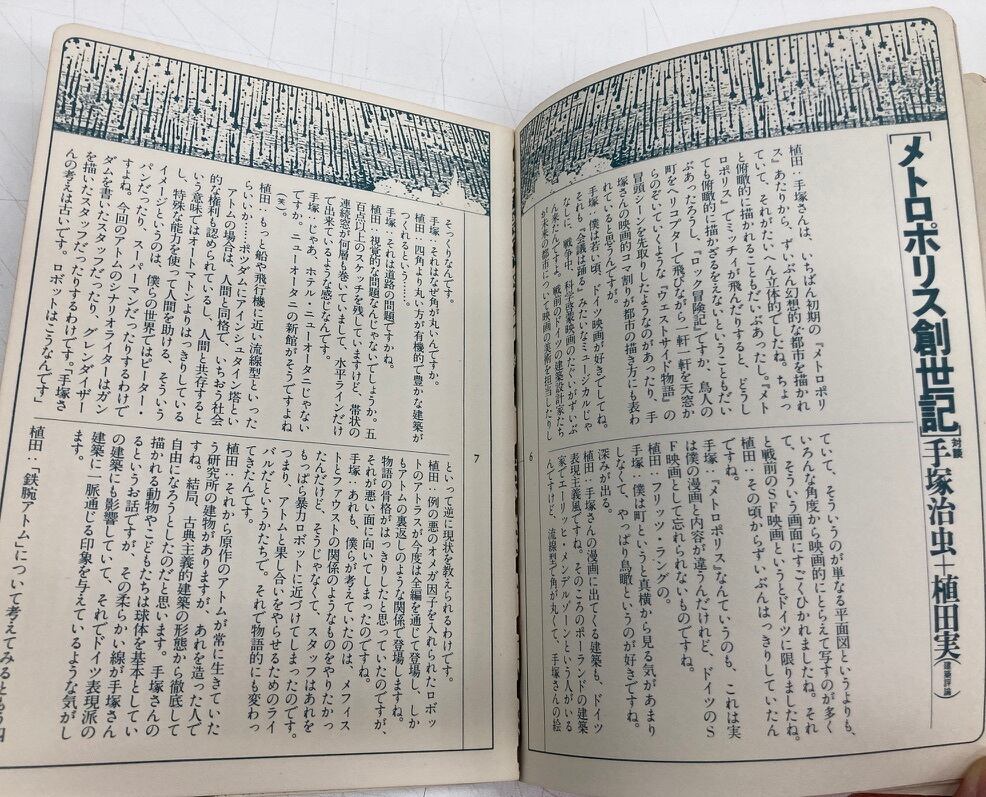 「メトロポリス創世記」対談 手塚治虫+植田実（建築評論）
植田：手塚さんは、いちばん初期の『メトロポリ
ス』あたりから、ずいぶん幻想的な都市を描かれ
ていて、それがたいへん立体的でしたね。ちょっ
と俯瞰的に描かれることもだいぶあったし。『メト
ロポリス』でミッチィが飛んだりすると、どうし
ても俯瞰的に描かざるをえないということもだい
ぶあったろうし、『ロック冒険記』ですか、鳥人の
町をヘリコプターで飛びながら一軒一軒を天窓か
らのぞいていくような『ウェストサイド物語』の
冒頭シーンを先取りしたようなのがあったり、手
塚さんの映画的コマ割りが都市の描き方にも表わ
れていると思うんですが。
手塚：僕は若い頃、ドイツ映画が好きでしてね。
それも『会議は踊る』みたいなミュージカルじゃ
なしに、戦争中、科学啓蒙映画のたぐいがずいぶ
ん来たんですよ。戦前のドイツの建築設計家たち
が未来の都市について映画の美術を担当したりし
ていて、そういうのが単なる平面図というよりも、
いろんな角度から映画的にとらえて写すのが多く
て、そういう画面にすごくひかれましたね。それ
と戦前のSF映画というとドイツに限りましたね。
植田：その頃からずいぶんはっきりしていたん
ですね。
手塚：『メトロポリス』なんていうのも、これは実
は僕の漫画と内容が違うんだけれど、ドイツのS
F映画として忘れられないものですね。
植田：フリッツ・ラングの。
手塚：僕は町というと真横から見る気があまり
しなくて、やっぱり鳥瞰というのが好きですね。
深みが出る。
植田：手塚さんの漫画に出てくる建築も、ドイツ
表現主義風ですね。そのころのポーランドの建築
家でエーリッヒ・メンデルゾーンという人がいる
んですけど、流線型で角が丸くて、手塚さんの絵
6
そっくりなんです。
手塚：それはなぜ角が丸いんですか。
植田：四角より丸い方が有機的で豊かな建築が
つくれるという……。
手塚：それは道路の問題ですかね。
植田：視覚的な問題なんじゃないでしょうか。五
百点以上のスケッチを残していますけど、帯状の
連続窓が何層も巻いていまして、水平ラインだけ
で出来ているような感じなんです。
手塚：じゃあ、ホテル・ニューオータニじゃない
ですか。ニューオータニの新館がそうですよね
（笑）。
植田：もっと船や飛行機に近い流線型といった
らいいか……ポツダムにアインシュタイン塔とい
アトムの場合は、人間と同格で、いちおう社会
的な権利も認められているし、人間と共存すると
いう意味ではオートマトンよりはっきりしている
し、特殊な能力を使って人間を助ける、そういう
イメージというのは、僕らの世界ではピーター・
パンだったり、スーパーマンだったりするわけで
すよね。今回のアトムのシナリオライターはガン
ダムを書いたスタッフだったり、グレンダイザー
を描いたスタッフだったりするわけです。「手塚さ
んの考えは古いです。ロボットはこうなんです」
といって逆に現状を教えられるわけです。
植田：例の悪のオメガ因子を入れられたロボッ
トのアトラスが今度は全編を通じて登場し、しか
もアトムの裏返しのような関係で登場しますね。
物語の骨格がはっきりしたと思っていたのですが、
それが悪い面に向いてしまったのですね。
手塚：あれも、僕らが考えていたのは、メフィス
トとファウストの関係のようなものをやりたかっ
たんだけど、そうじゃなくて、スタッフはあれを
もっぱら暴力ロボットに近づけてしまったのです。
つまり、アトムと果し合いをやらせるためのライ
バルだというかたちで。それで物語的にも変わっ
てきたんです。
植田：それから原作のアトムが常に生きていた
う研究所の建物がありますが、あれを造った人で
すね。結局、古典主義的建築の形態から徹底して
自由になろうとしたのだと思います。手塚さんの
描かれる動物やこどもたちは球体を基本としてい
るというお話ですが、その柔らかい線が手塚さん
の建築にも影響していて、それでドイツ表現派の
建築に一脈通じる印象を与えているような気がし
ます。
植田：「鉄腕アトム」について考えてみると
7